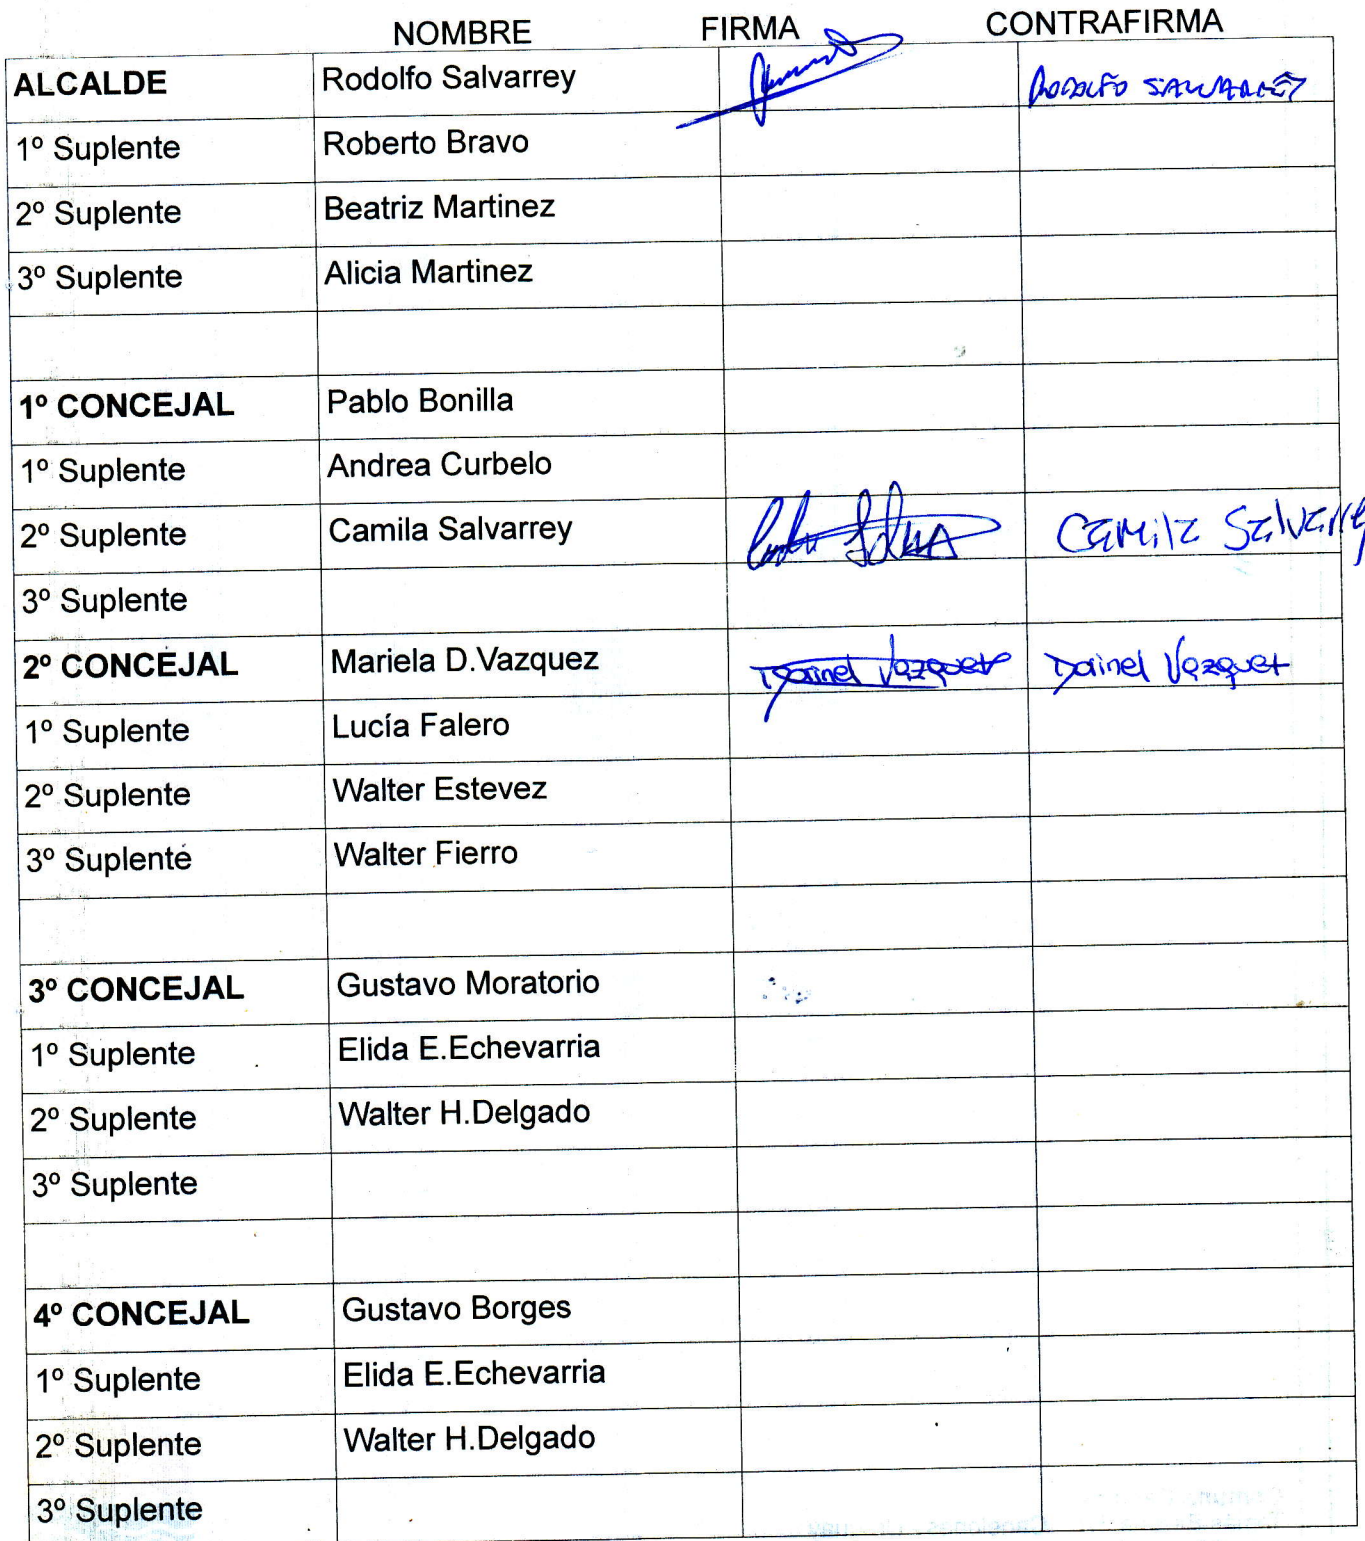 NOMBRE FIRMA CONTRAFIRMA
ALCALDE Rodolfo Salvarrey RODOLFO SALVARREY
1º Suplente Roberto Bravo
2º Suplente Beatriz Martinez
3º Suplente Alicia Martinez
1º CONCEJAL Pablo Bonilla
1º Suplente Andrea Curbelo
2º Suplente Camila Salvarrey Camila Salvarrey
3º Suplente
2º CONCEJAL Mariela D.Vazquez Dainel Vazquez Dainel Vazquez
1º Suplente Lucía Falero
2º Suplente Walter Estevez
3º Suplente Walter Fierro
3º CONCEJAL Gustavo Moratorio
1º Suplente Elida E.Echevarria
2º Suplente Walter H.Delgado
3º Suplente
4º CONCEJAL Gustavo Borges
1º Suplente Elida E.Echevarria
2º Suplente Walter H.Delgado
3º Suplente